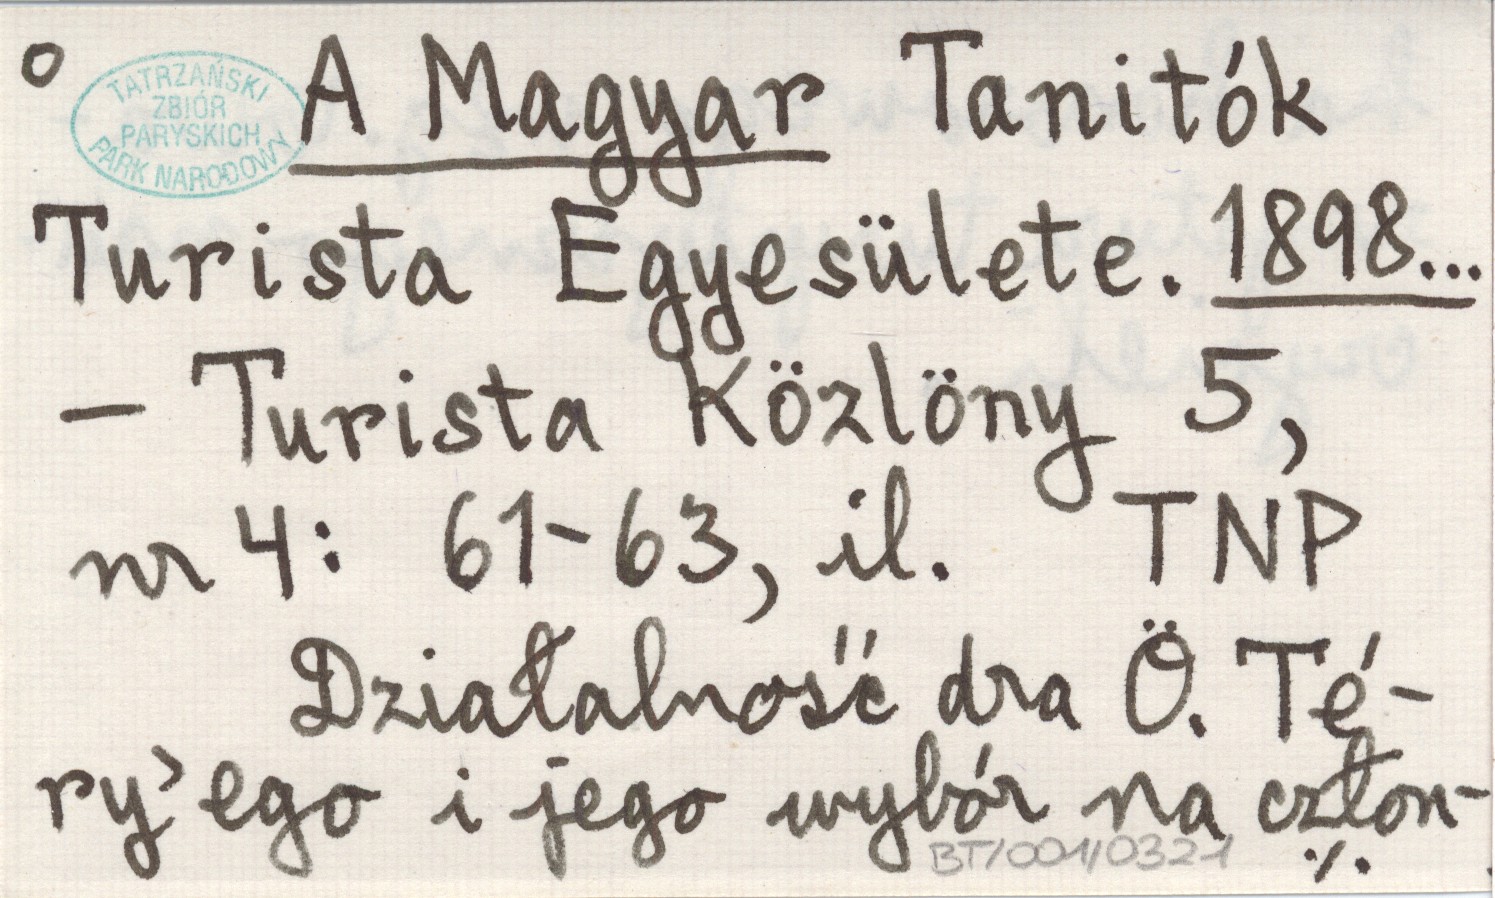 o
TATRZAŃSKI
ZBIÓR
PARYSKICH
PARK NARODOWY
A Magyar Tanitók
Turista Egyesülete. 1898...
- Turista Közlöny 5,
nr 4: 61-63, il. TNP
Działalność dra Ö. Té-
ry'ego i jego wybór na człon-
BT/001/0321
·/.